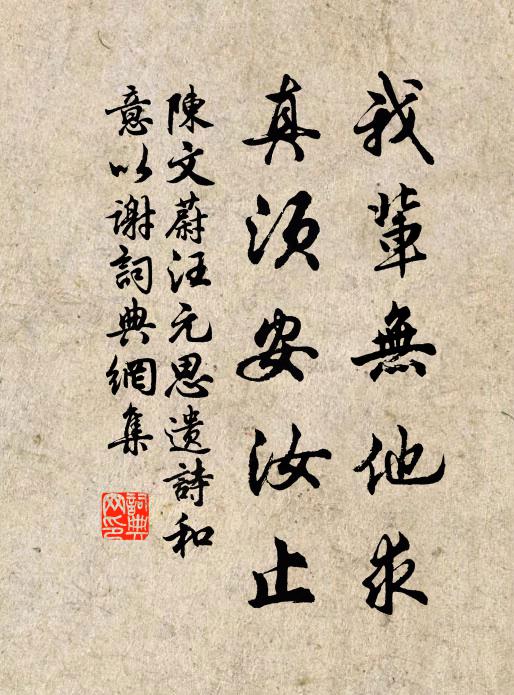 我輩無他求
真須安汝止
陳文蔚汪元思遺詩和
意以謝詞典網集
詞典網印